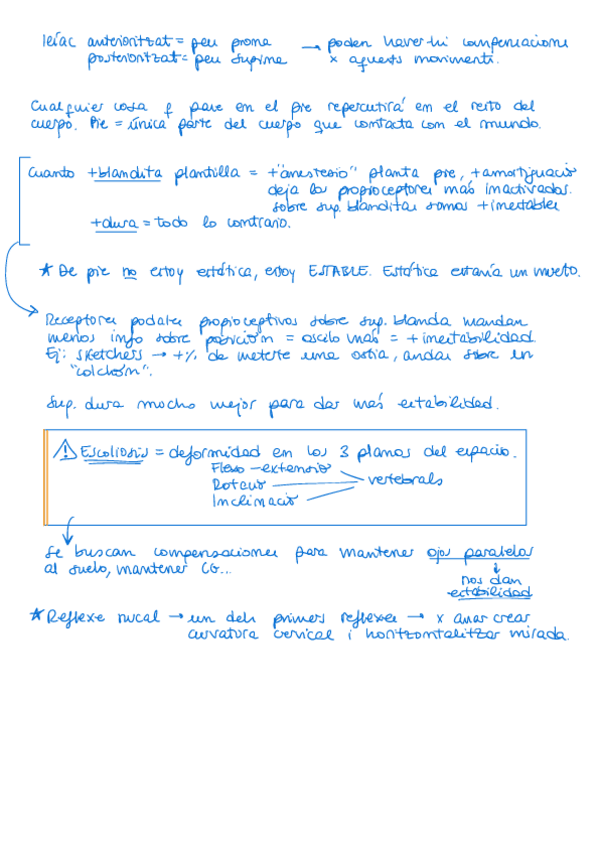 Ilíac anterioritzat = peu prona → poden haver-hi compensacions
posterioritzat = peu supina x aquests moviments.
Cualquier cosa q pase en el pie repercutirá en el resto del
cuerpo. Pie = única parte del cuerpo que contacta con el mundo.
Cuanto + blandita plantilla = + "anestesio" planta pie, + amortiguació
deja los propioceptores más inactivados.
sobre sup. blanditas somos + inestables
+ dura = todo lo contrario.
* De pie no estoy estática, estoy ESTABLE. Estática estaría un muerto.
Receptores podales propioceptivos sobre sup. blanda mandan
menos info sobre posición = oscilo más = + inestabilidad.
Ej: sketchers → +% de meterte una ostia, andar sobre un
"colchón".
Sup. dura mucho mejor para dar más estabilidad.
⚠ Escoliosis = deformidad en los 3 planos del espacio.
Flexo-extensió
Rotació vertebrals
Inclinació
Se buscan compensaciones para mantener ojos paralelos
al suelo, mantener CG...
↓
nos dan
estabilidad
* Reflexe nucal → un dels primers reflexes → x anar crear
curvatura cervical i horitzontalitzar mirada.